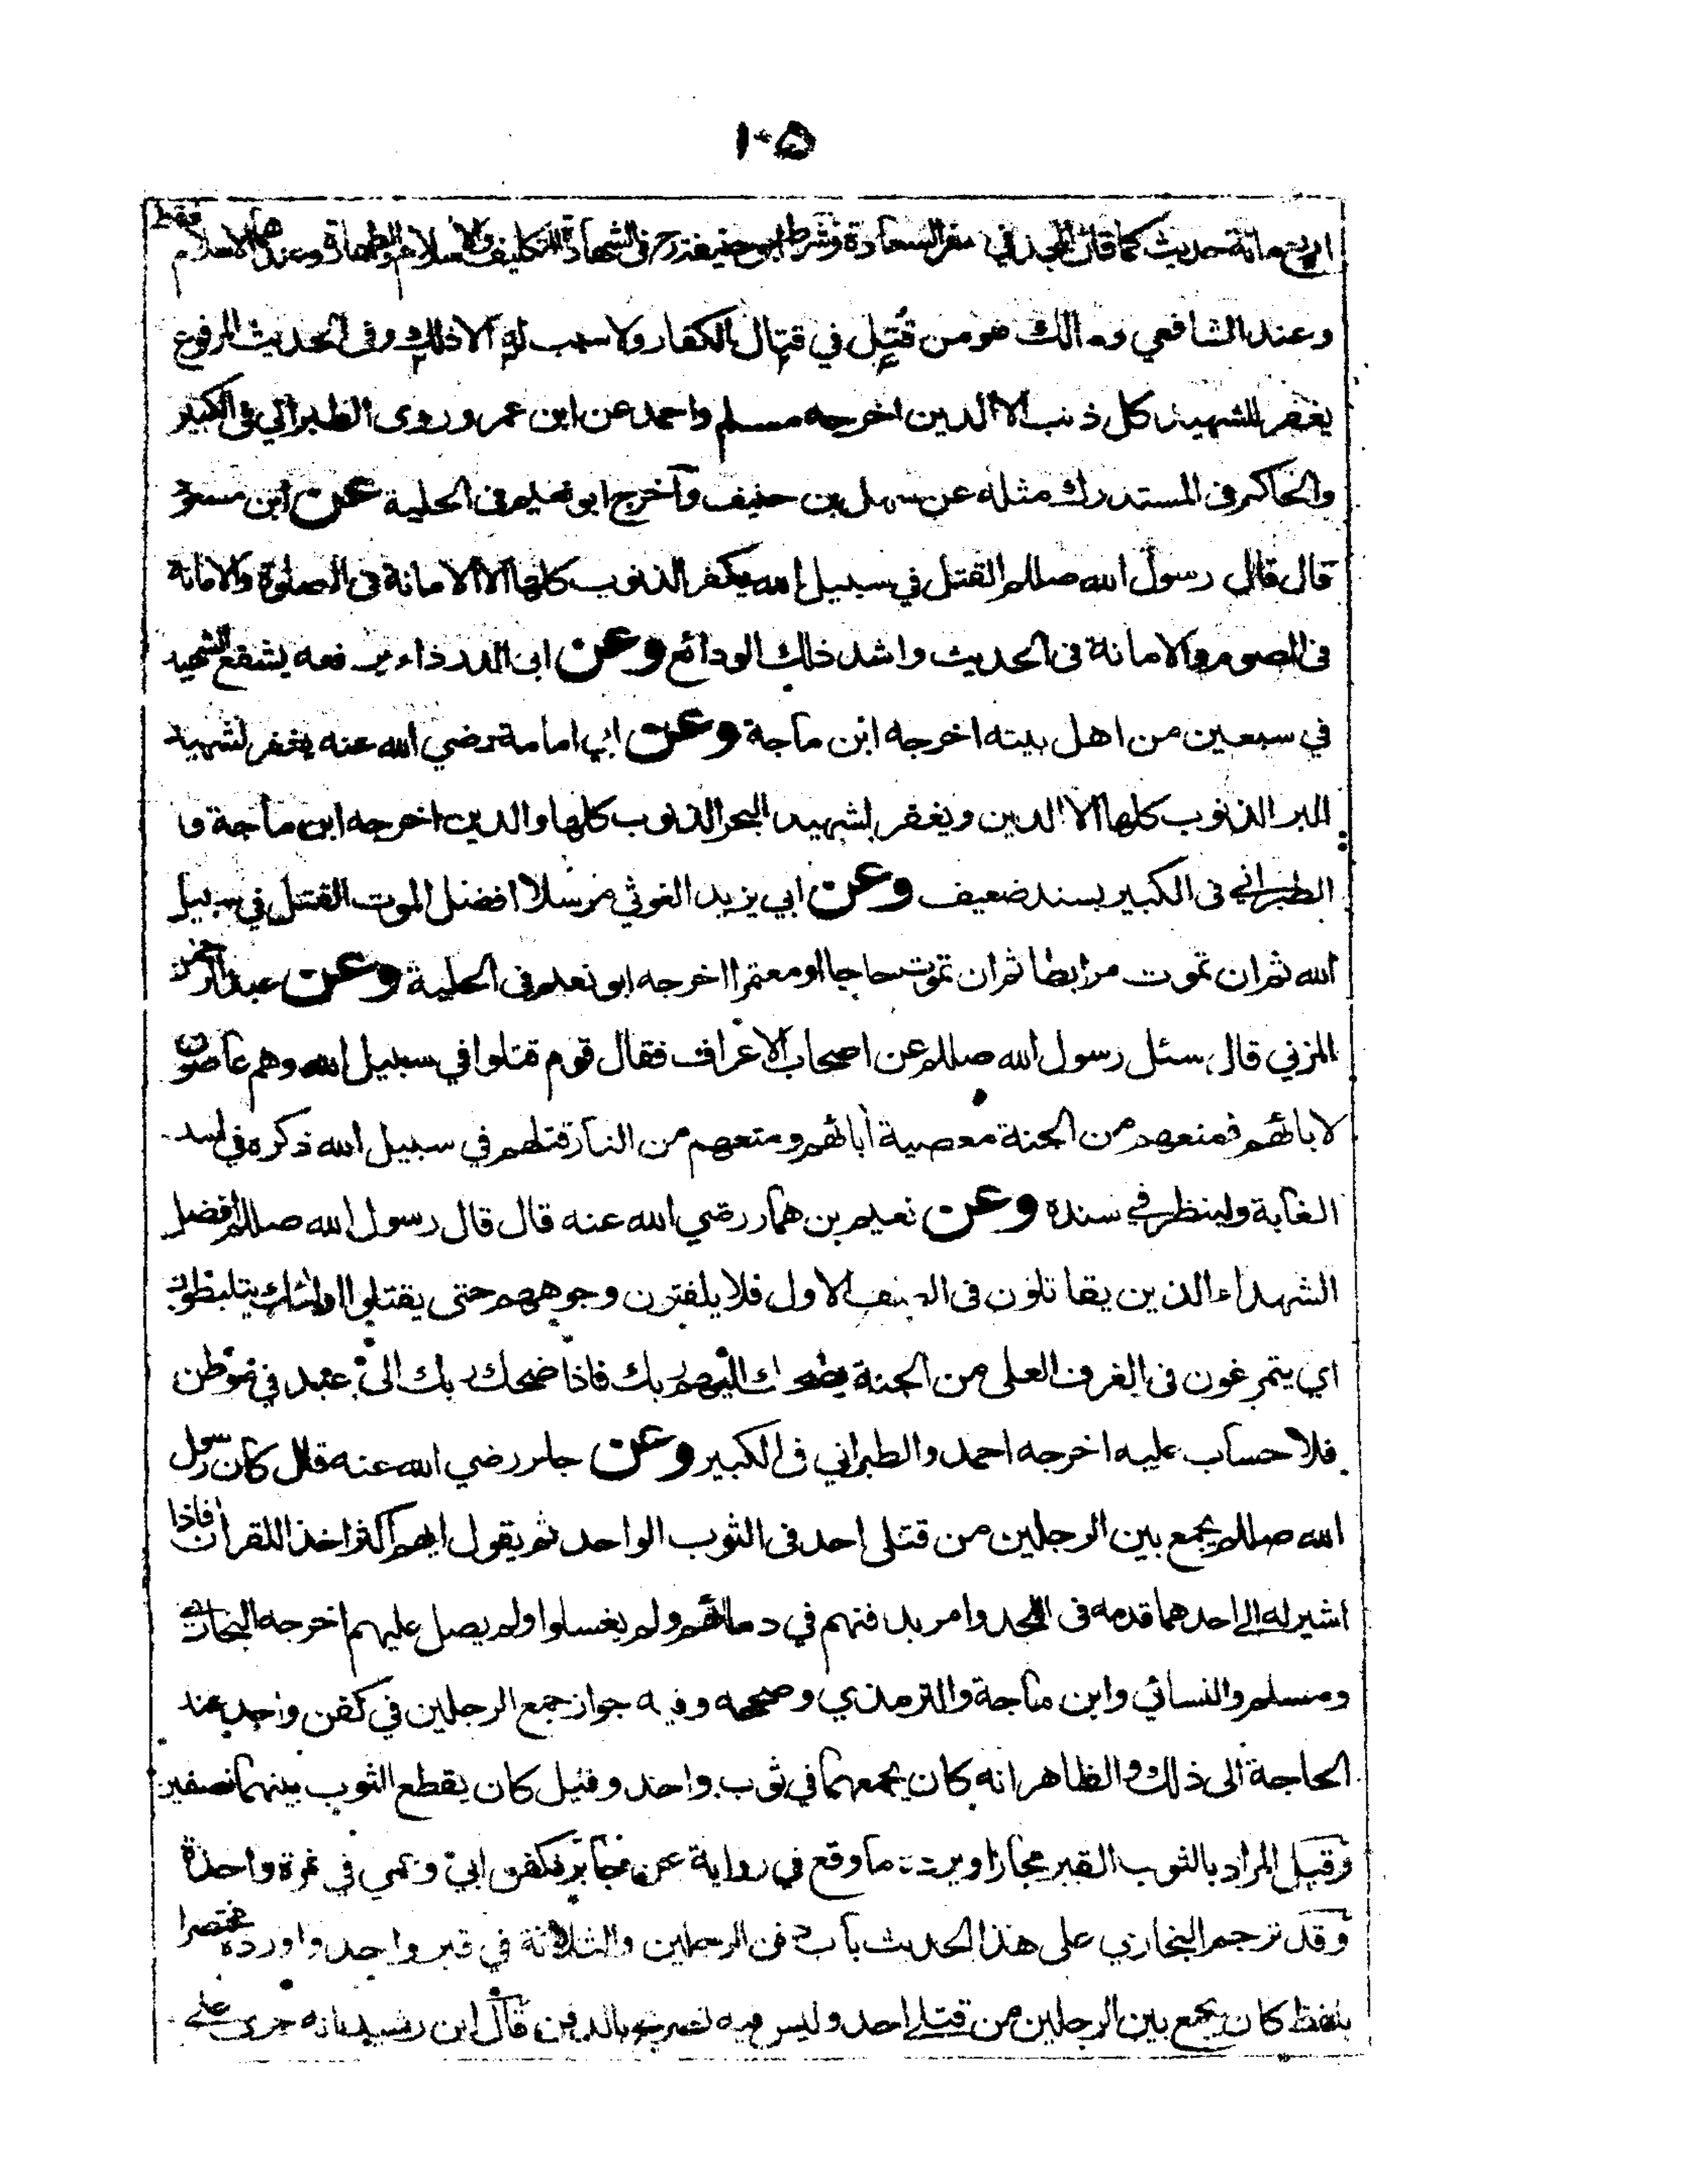 ١٠٥
اربع مائة حديث كما قال المجد في سفر السعادة وشرط ابو حنيفة رح في الشهادة التكليف والاسلام والطهارة وعندهما الاسلام فقط
وعند الشافعي ومالك هو من قُتِل في قتال الكفار ولا سبب له الا ذلك وفى الحديث المرفوع
يغفر للشهيد كل ذنب الا الدين اخرجه مسلم واحمد عن ابن عمر وروى الطبراني فى الكبير
والحاكم فى المستدرك مثله عن سهل بن حنيف وآخرج ابو نعيم فى الحلية عن ابن مسعود
قال قال رسول الله صللم القتل في سبيل الله يكفر الذنوب كلها الا الامانة فى الصلوة والامانة
فى الصوم والامانة فى الحديث واشد ذلك الودائع وعن ابى الدرداء يرفعه يشفع الشهيد
في سبعين من اهل بيته اخرجه ابن ماجة وعن ابي امامة رضي الله عنه يغفر لشهيد
البر الذنوب كلها الا الدين ويغفر لشهيد البحر الذنوب كلها والدين اخرجه ابن ماجة وا
الطبراني فى الكبير بسند ضعيف وعن ابي يزيد الغوثي مرسلا افضل الموت القتل في سبيل
الله ثم ان تموت مرابطا ثم ان تموت حاجا او معتمرا اخرجه ابو نعيم فى الحلية وعن عبد الرحمن
المزني قال سئل رسول الله صللم عن اصحاب الاعراف فقال قوم قتلوا في سبيل الله وهم عاصون
لابائهم فمنعهم من الجنة معصية أبائهم ومنعهم من النار قتلهم في سبيل الله ذكره في اسد
الغابة ولينظر في سنده وعن نعيم بن همار رضي الله عنه قال قال رسول الله صللم افضل
الشهداء الذين يقاتلون فى الصف الاول فلا يلفتون وجوههم حتى يقتلوا اولئك يتلبطون
اي يتمرغون فى الغرف العلى من الجنة يضحك اليهم ربك فاذا ضحك ربك الى عبد في موطن
فلا حساب عليه اخرجه احمد والطبراني فى الكبير وعن جابر رضي الله عنه قال كان رسول
الله صللم يجمع بين الرجلين من قتلى احد فى الثوب الواحد ثم يقول ايهم اكثر اخذا للقرأن فاذا
اشير له الى احدهما قدمه فى اللحد وامر بدفنهم في دمائهم ولم يغسلوا ولم يصل عليهم اخرجه البخاري
ومسلم والنسائي وابن ماجة والترمذي وصححه وفيه جواز جمع الرجلين في كفن واحد عند
الحاجة الى ذلك والظاهر انه كان يجمعهما في ثوب واحد وقيل كان يقطع الثوب بينهما نصفين
وقيل المراد بالثوب القبر مجازا ويرده ما وقع في رواية عن جابر فكفن ابي وعمي في نمرة واحدة
وقد ترجم البخاري على هذا الحديث باب دفن الرجلين والثلاثة في قبر واحد واورده مختصرا
بلفظ كان يجمع بين الرجلين من قتلى احد وليس فيه تصريح بالدفن قال ابن رشيد بانه جرى على